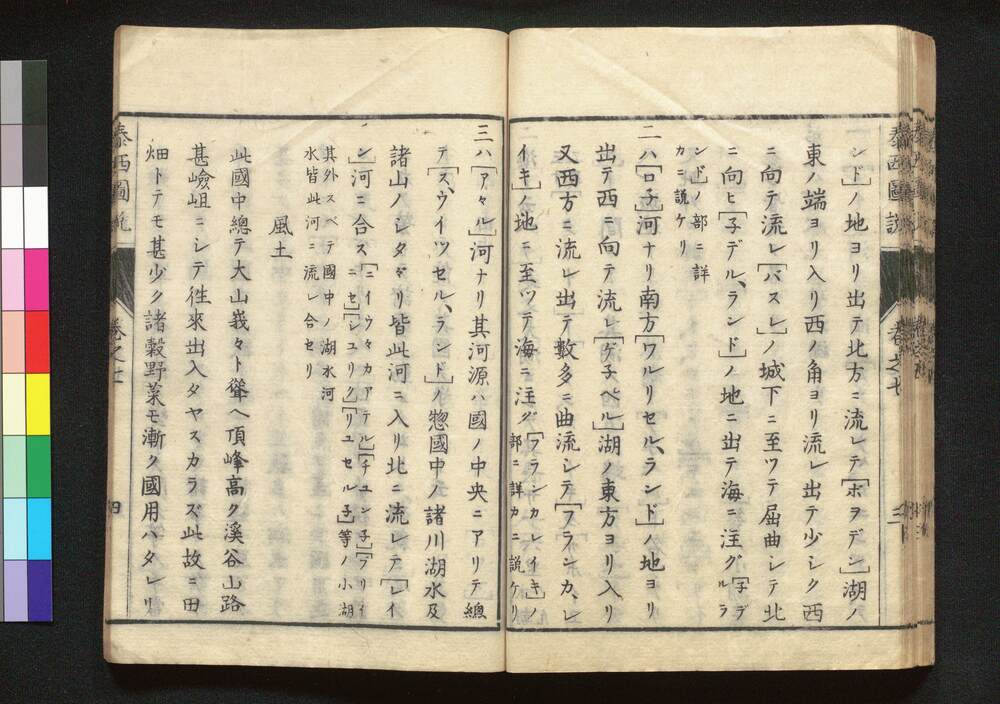 ンド]ノ地ヨリ出テ北方ニ流レテ[ボヲデン]湖ノ
東ノ端ヨリ入リ西ノ角ヨリ流レ出テ少シク西
ニ向テ流レ[バスレ]ノ城下ニ至ツテ屈曲シテ北
ニ向ヒ[子デル、ランド]ノ地ニ出テ海ニ注グ[子デルラ
ンド]ノ部ニ詳
カニ説ケリ
二ハ[ロ子]河ナリ南方[ワルリセル、ランド]ノ地ヨリ
出テ西ニ向テ流レ[ゲ子ベル]湖ノ東方ヨリ入リ
又西方ニ流レ出テ數多ニ曲流シテ[フランカ、レ
イキ]ノ地ニ至ツテ海ニ注グ[フランカレイキ]ノ
部ニ詳カニ説ケリ
三ハ[アヽル]河ナリ其河源ハ國ノ中央ニアリテ[總
テ[ス、ウイツセル、ランド]ノ惣國中ノ諸川湖水及
諸山ノシタヾリ皆此河ニ入リ北ニ流レテ[レイ
ン]河ニ合ス[ニイウヽカアテル][チユンチ][ブリイ
ニセ][シユリク][リユセル子]等ノ小湖
其外スベテ國中ノ湖水河
水皆此河ニ流レ合セリ
風土
此國中總テ大山峩々ト聳ヘ頂峰高ク溪谷山路
甚嶮岨ニシテ徃來出入タヤスカラズ此故ニ田
畑トテモ甚少ク諸穀野菜モ漸ク國用ハタレリ
泰西圖説
卷之七
四